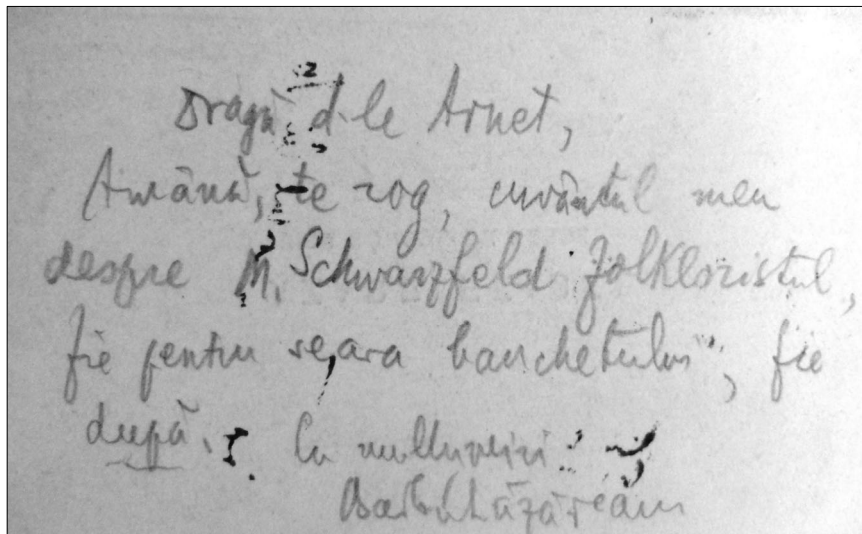 Dragă d-le Arnet,
Amână, te rog, cuvântul meu
despre M. Schwarzfeld folkloristul,
fie pentru seara banchetului, fie
după.
Cu mulțumiri
Barbu Lăzăreanu